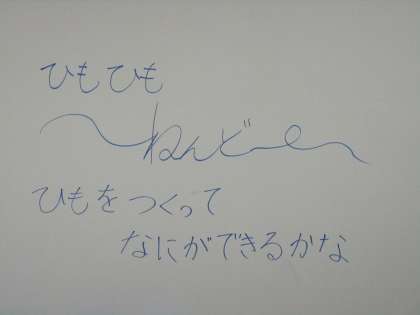 ひもひも
～ねんど～
ひもをつくって
なにができるかな